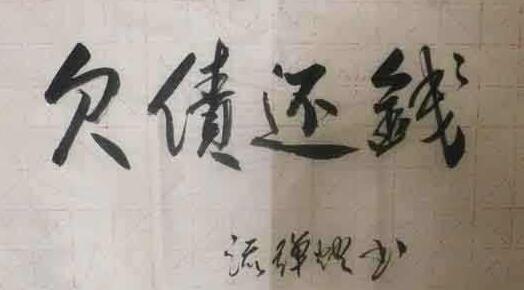 欠債还錢
流弹燈书